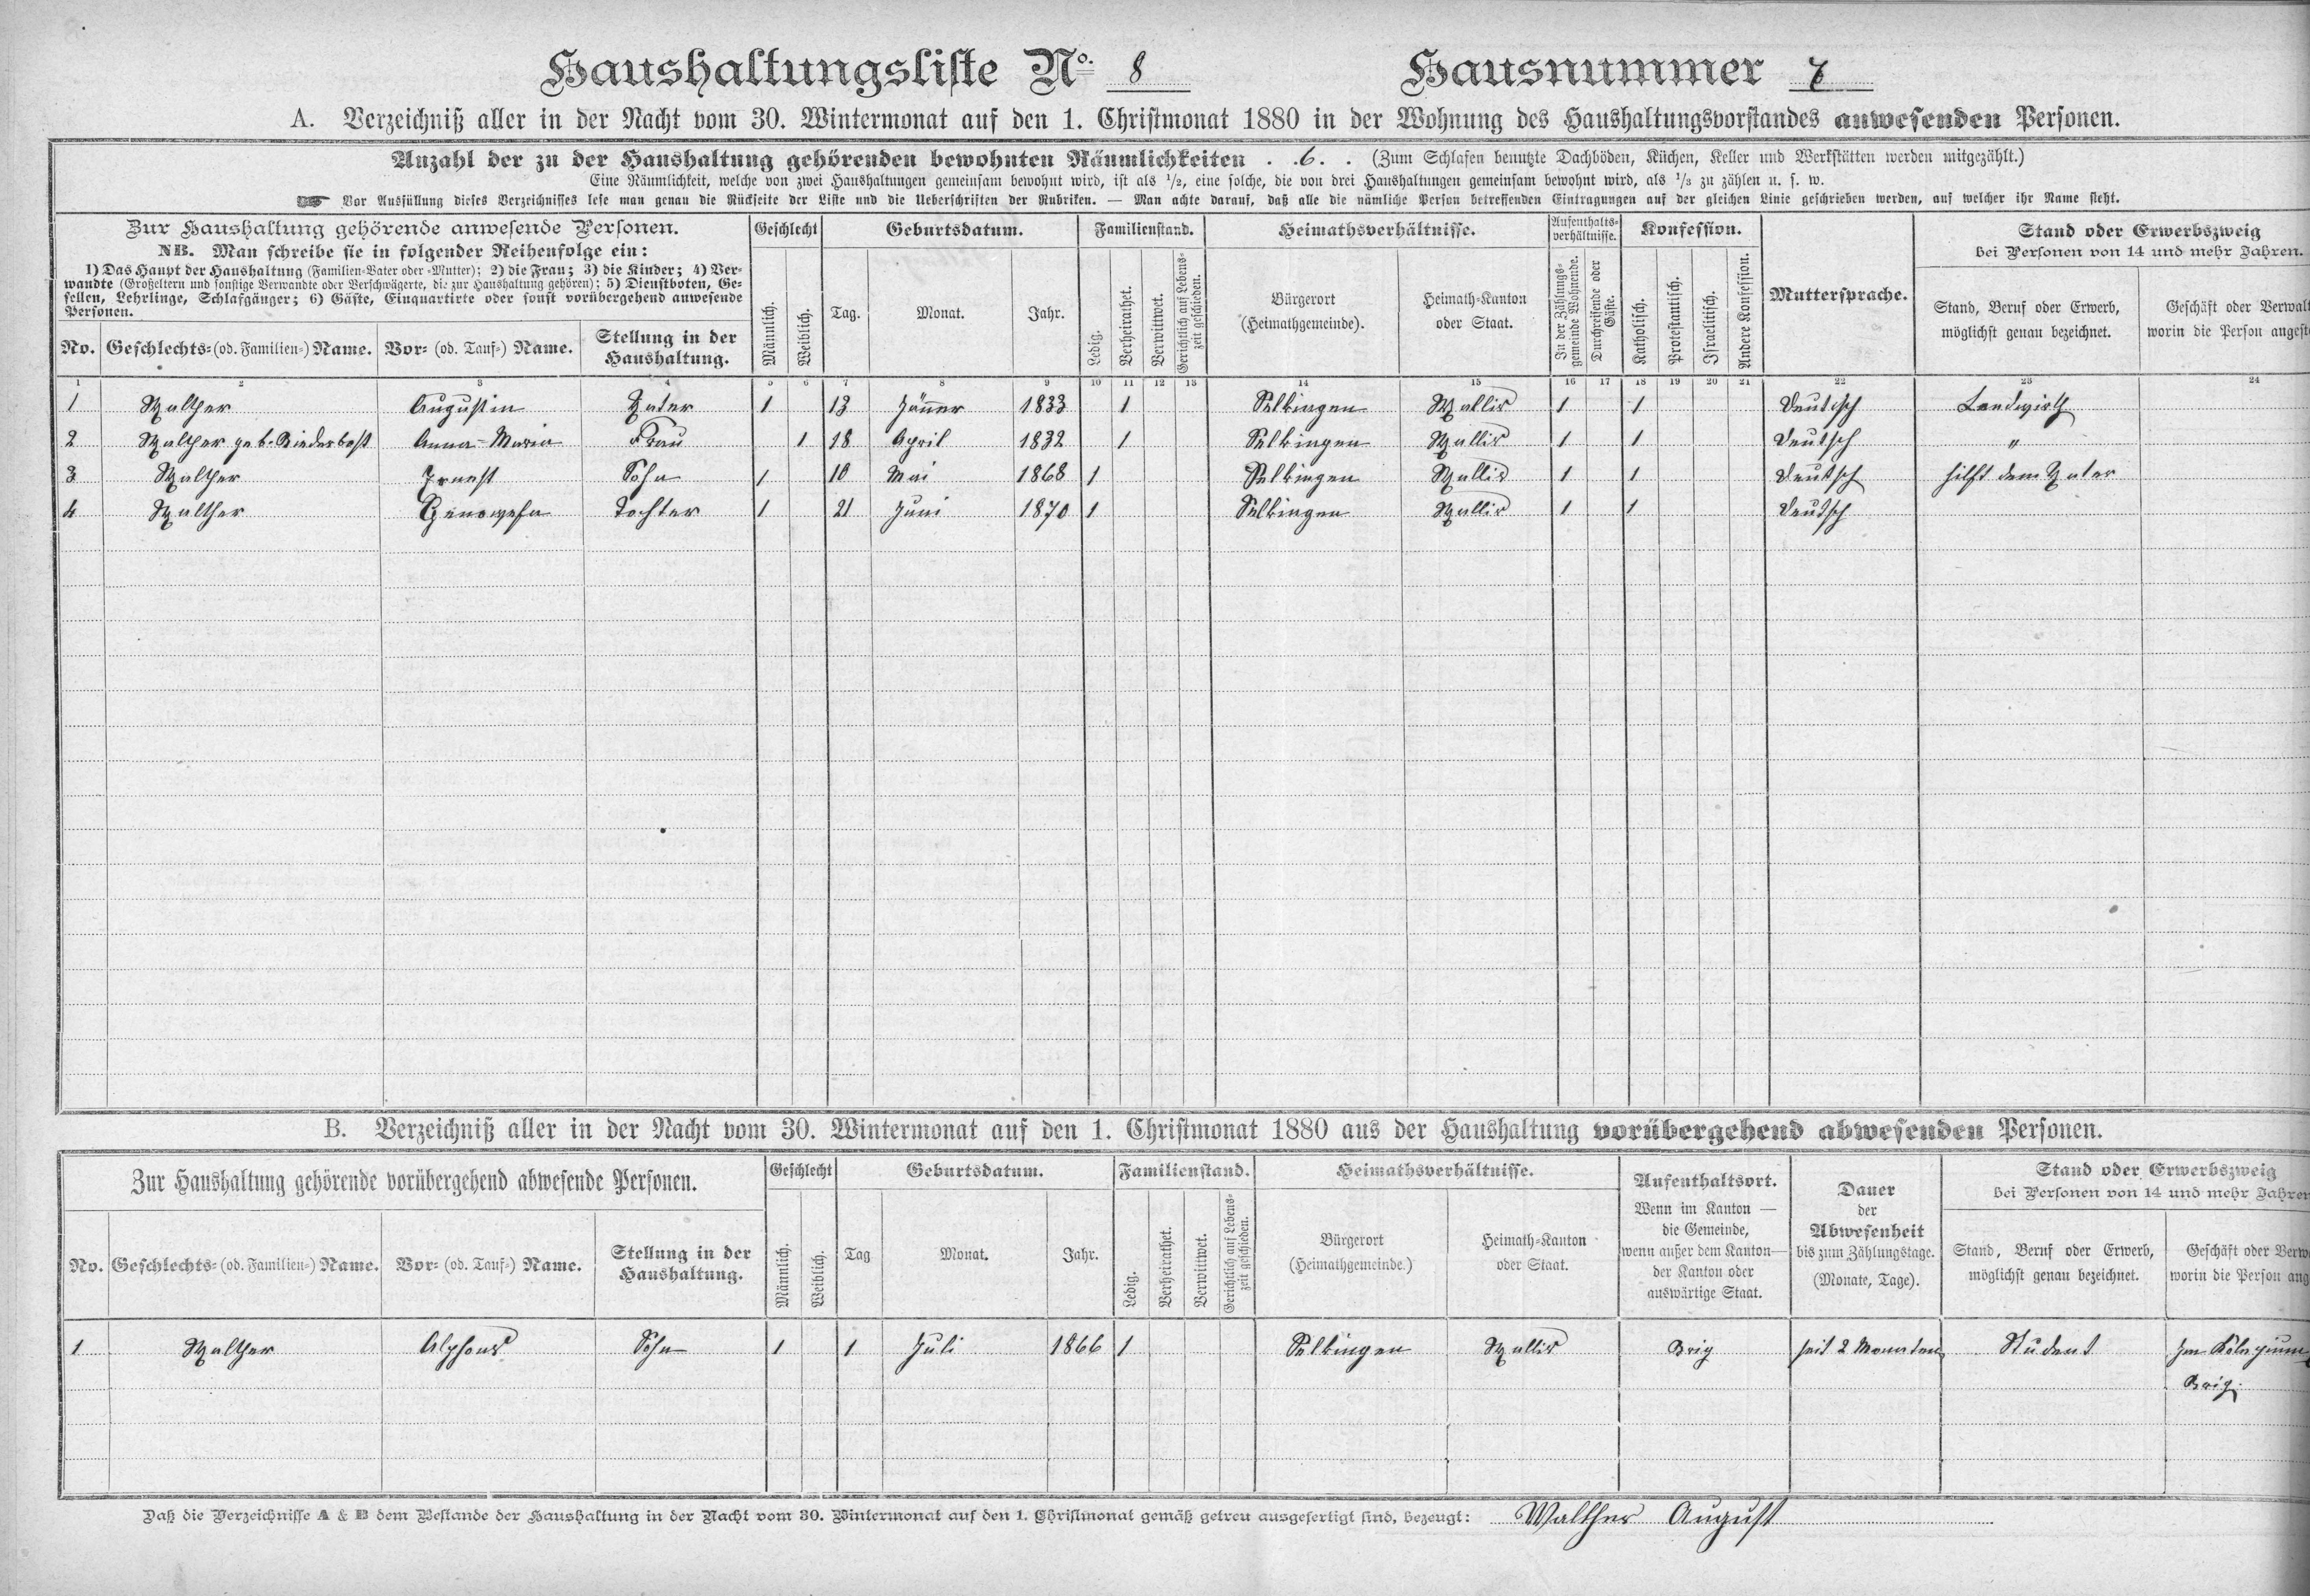 Haushaltungsliste No. 8 Hausnummer 7
A. Verzeichniß aller in der Nacht vom 30. Wintermonat auf den 1. Christmonat 1880 in der Wohnung des Haushaltungsvorstandes anwesenden Personen.
Anzahl der zu der Haushaltung gehörenden bewohnten Räumlichkeiten . .6. . (Zum Schlafen benutzte Dachböden, Küchen, Keller und Werkstätten werden mitgezählt.)
Eine Räumlichkeit, welche von zwei Haushaltungen gemeinsam bewohnt wird, ist als 1/2, eine solche, die von drei Haushaltungen gemeinsam bewohnt wird, als 1/3 zu zählen u. s. w.
Vor Ausfüllung dieses Verzeichnisses lese man genau die Rückseite der Liste und die Ueberschriften der Rubriken. — Man achte darauf, daß alle die nämliche Person betreffenden Eintragungen auf der gleichen Linie geschrieben werden, auf welcher ihr Name steht.
Zur Haushaltung gehörende anwesende Personen.
NB. Man schreibe sie in folgender Reihenfolge ein:
1) Das Haupt der Haushaltung (Familien-Vater oder -Mutter); 2) die Frau; 3) die Kinder; 4) Ver-
wandte (Großeltern und sonstige Verwandte oder Verschwägerte, die zur Haushaltung gehören); 5) Dienstboten, Ge-
sellen, Lehrlinge, Schlafgänger; 6) Gäste, Einquartirte oder sonst vorübergehend anwesende
Personen.
No. Geschlechts- (od. Familien-) Name. Vor- (od. Tauf-) Name. Stellung in der
Haushaltung.
Geschlecht
Männlich.
Weiblich.
Geburtsdatum.
Tag. Monat. Jahr.
Familienstand.
Ledig.
Verheirathet.
Verwittwet.
Gerichtlich auf Lebens-
zeit geschieden.
Heimathsverhältnisse.
Bürgerort
(Heimathgemeinde).
Heimath-Kanton
oder Staat.
Aufenthalts-
verhältnisse.
In der Zählungs-
gemeinde Wohnende.
Durchreisende oder
Gäste.
Konfession.
Katholisch.
Protestantisch.
Israelitisch.
Andere Konfession.
Muttersprache.
Stand oder Erwerbszweig
bei Personen von 14 und mehr Jahren.
Stand, Beruf oder Erwerb,
möglichst genau bezeichnet.
Geschäft oder Verwalt
worin die Person angest
1 2 3 4 5 6 7 8 9 10 11 12 13 14 15 16 17 18 19 20 21 22 23 24
1 Walther Augustin Vater 1 13 Jänner 1833 1 Selkingen Wallis 1 1 Deutsch Landwirth
2 Walther geb. Biederbost Anna-Maria Frau 1 18 April 1832 1 Selkingen Wallis 1 1 Deutsch "
3 Walther Ernest Sohn 1 10 Mai 1868 1 Selkingen Wallis 1 1 Deutsch hilft dem Vater
4 Walther Genovefa Tochter 1 21 Juni 1870 1 Selkingen Wallis 1 1 Deutsch
B. Verzeichniß aller in der Nacht vom 30. Wintermonat auf den 1. Christmonat 1880 aus der Haushaltung vorübergehend abwesenden Personen.
Zur Haushaltung gehörende vorübergehend abwesende Personen.
No. Geschlechts- (od. Familien-) Name. Vor- (od. Tauf-) Name. Stellung in der
Haushaltung.
Geschlecht
Männlich.
Weiblich.
Geburtsdatum.
Tag Monat. Jahr.
Familienstand.
Ledig.
Verheirathet.
Verwittwet.
Gerichtlich auf Lebens-
zeit geschieden.
Heimathsverhältnisse.
Bürgerort
(Heimathgemeinde.)
Heimath-Kanton
oder Staat.
Aufenthaltsort.
Wenn im Kanton —
die Gemeinde,
wenn außer dem Kanton—
der Kanton oder
auswärtige Staat.
Dauer
der
Abwesenheit
bis zum Zählungstage.
(Monate, Tage).
Stand oder Erwerbszweig
bei Personen von 14 und mehr Jahren
Stand, Beruf oder Erwerb,
möglichst genau bezeichnet.
Geschäft oder Verwa
worin die Person ang
1 Walther Alphons Sohn 1 1 Juli 1866 1 Selkingen Wallis Brig seit 2 Monaten Student Im Kolegium
Brig.
Daß die Verzeichnisse A & B dem Bestande der Haushaltung in der Nacht vom 30. Wintermonat auf den 1. Christmonat gemäß getreu ausgefertigt sind, bezeugt: Walther August